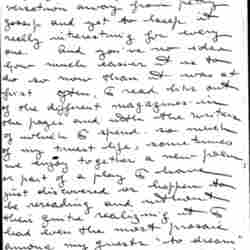 versation away from petty
gossip and yet to keep it
really interesting for every
one. And you've no idea
how much easier it is to
do so now than it was at
first. Often, I read bits out
of the different magazines in
the pages and with the writers
of which I spend so much
of my truest life, sometimes
we enjoy together a new poem,
or part of a play I have
just discovered or happen to
be rereading and without
their quite realizing it I
lead even the most prosaic
among my guests to